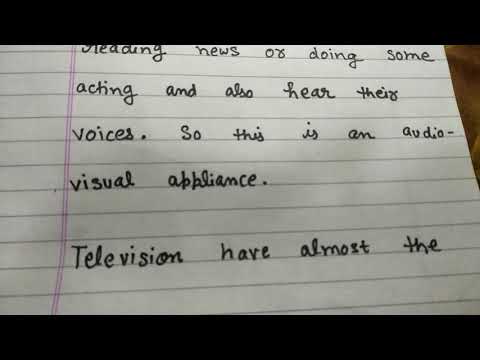 Reading news or doing some
acting and also hear their
voices. So this is an audio-
visual appliance.
Television have almost the